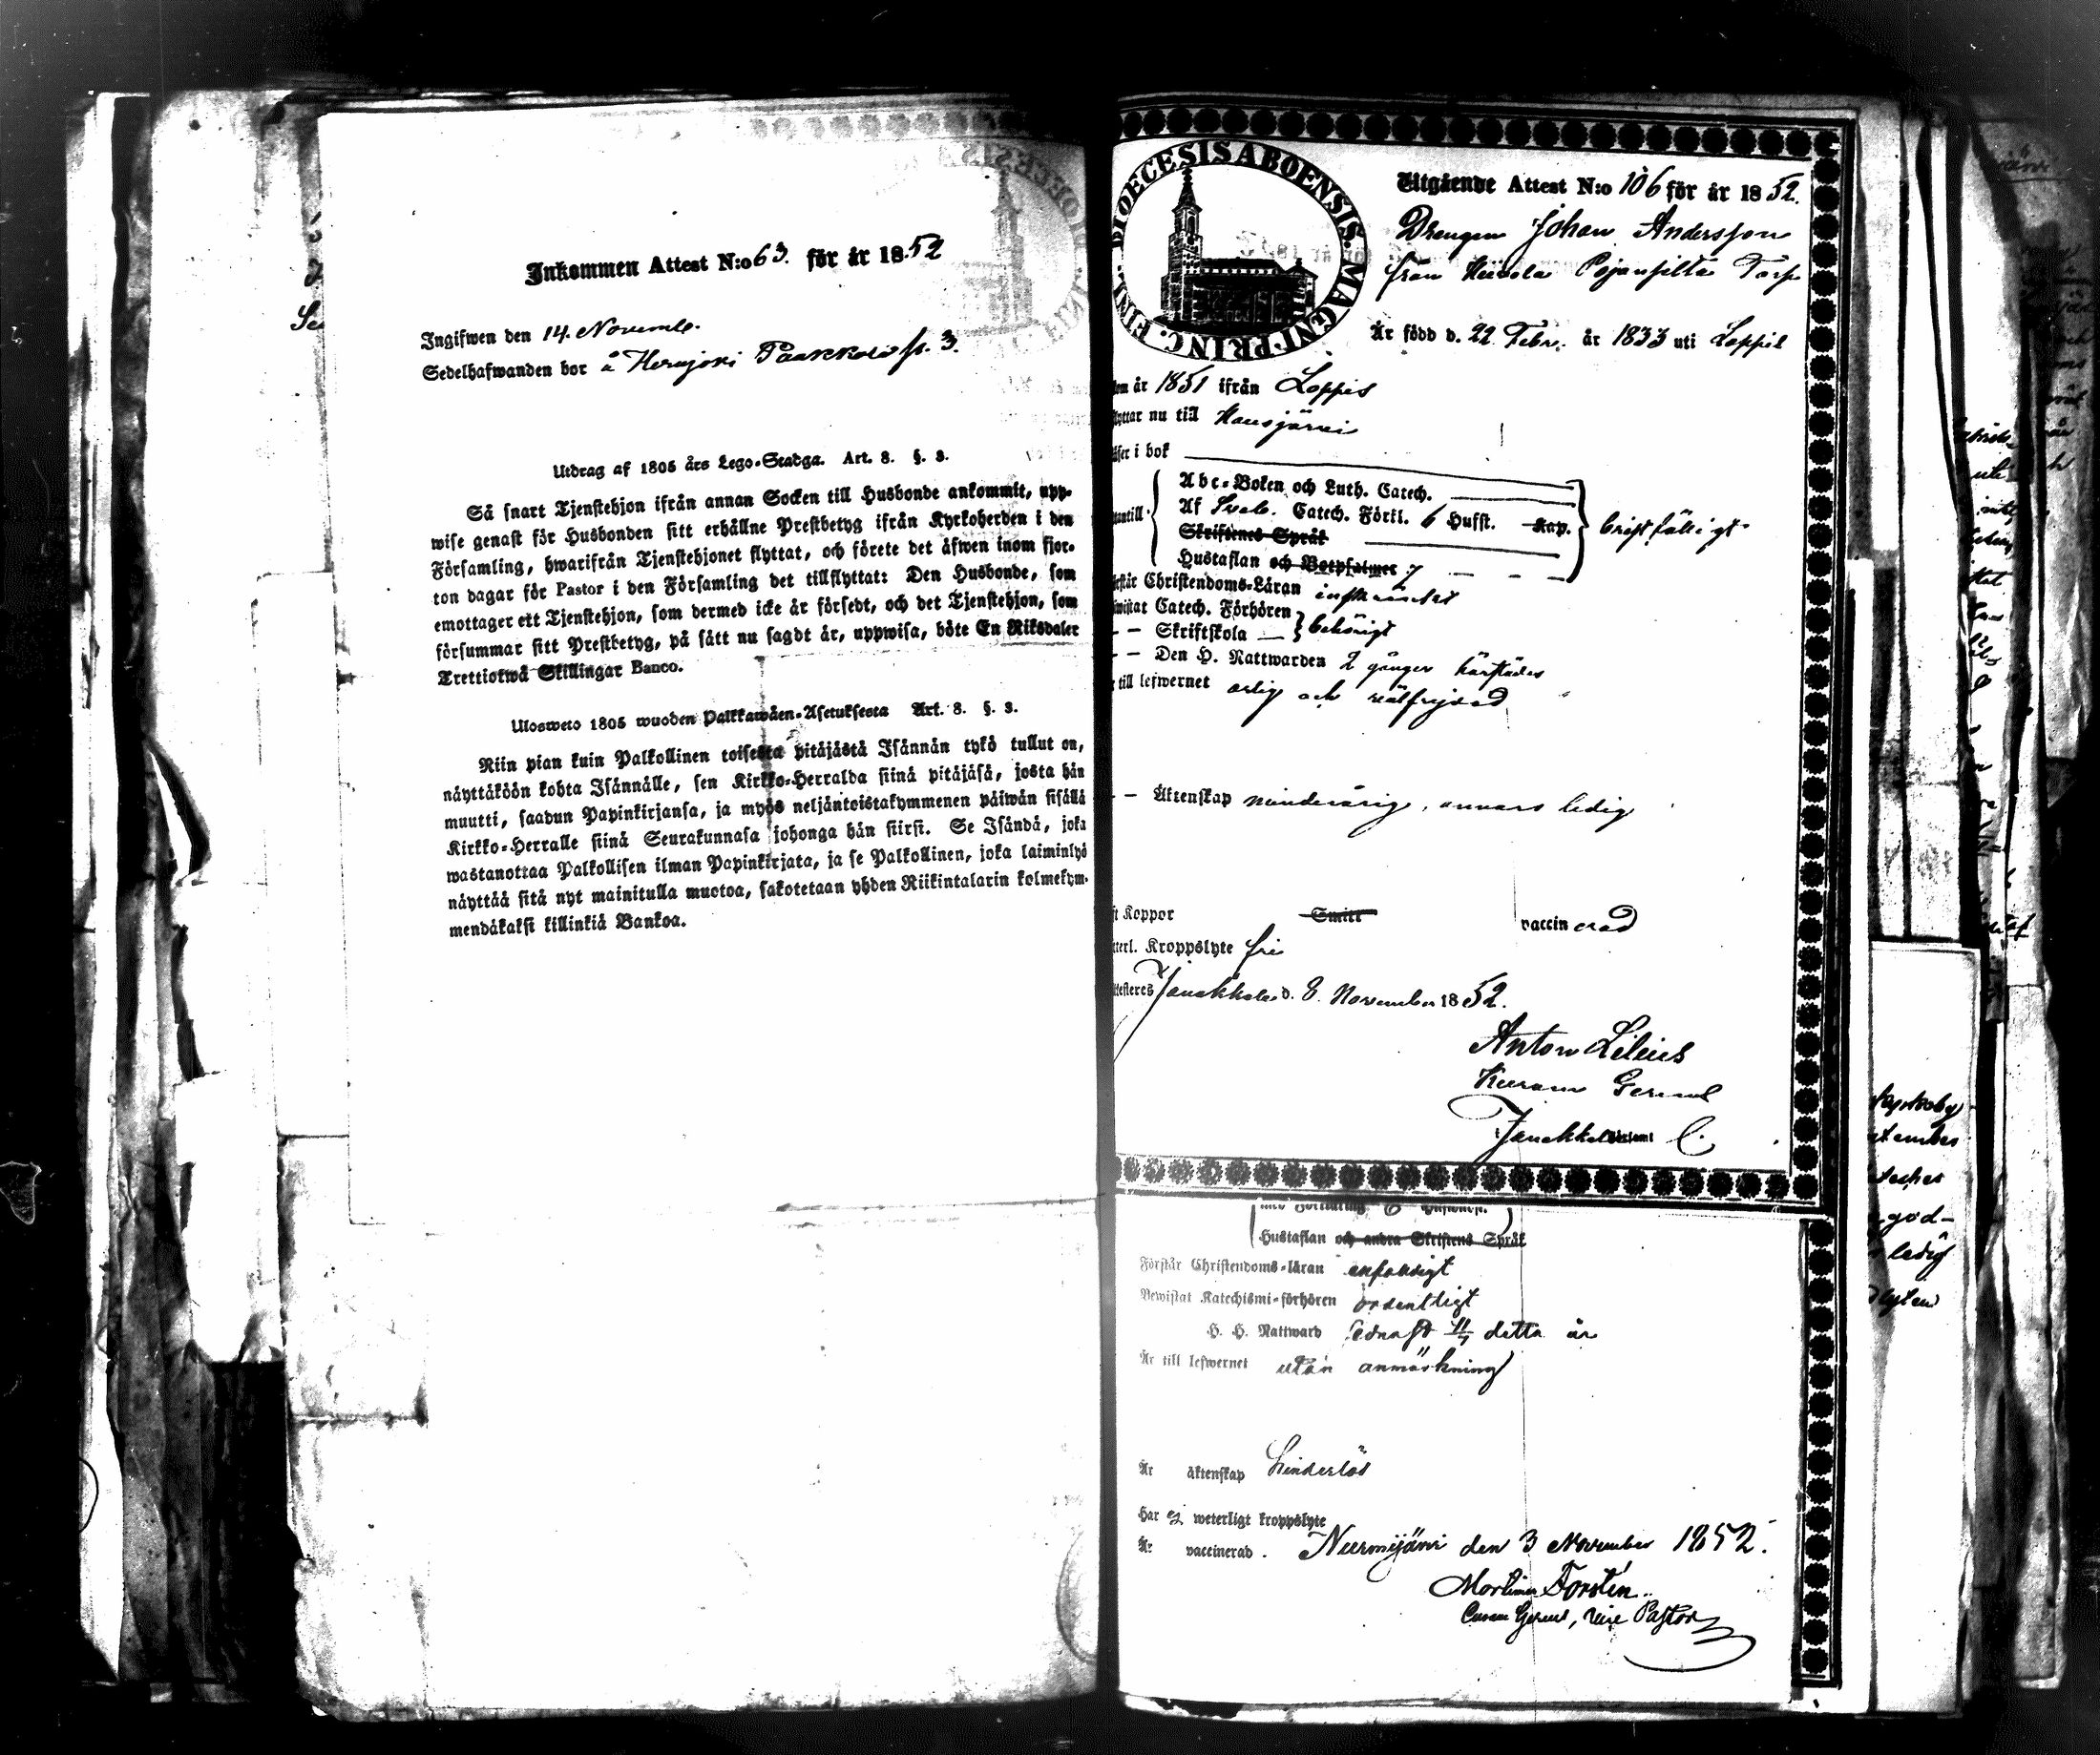 Inkommen Attest N:o 63. för år 18.52
Ingifwen den 14. Novemb.
Sedelhafwanden bor å Herajoki Paakkola p. 3.
Utdrag af 1805 års Lego-Stadga. Art. 8. §. 3.
Så snart Tjenstehjon ifrån annan Socken till Husbonde ankommit, upp-
wise genast för Husbonden sitt erhållne Prestbetyg ifrån Kyrkoherden i den
Församling, hwarifrån Tjenstehjonet flyttat, och förete det äfwen inom fjor-
ton dagar för Pastor i den Församling det tillflyttat: Den Husbonde, som
emottager ett Tjenstehjon, som dermed icke är försedt, och det Tjenstehjon, som
försummar sitt Prestbetyg, på sätt nu sagdt är, uppwisa, böte En Riksdaler
Trettiotwå Skillingar Banco.
Ulosweto 1805 wuoden Palkkawäen-Asetuksesta Art. 8. §. 3.
Niin pian kuin Palkollinen toisesta pitäjästä Isännän tykö tullut on,
näyttäköön kohta Isännälle, sen Kirkko-Herralda siinä pitäjäsä, josta hän
muutti, saadun Papinkirjansa, ja myös neljäntoistakymmenen päiwän sisällä
Kirkko-Herralle siinä Seurakunnasa johonga hän siirsi. Se Isändä, joka
wastanottaa Palkollisen ilman Papinkirjata, ja se Palkollinen, joka laiminlyö
näyttää sitä nyt mainitulla muotoa, sakotetaan yhden Riikintalarin kolmekym-
mendäkaksi killinkiä Bankoa.
DIOECESIS ABOENSIS. MAGNI PRINC. FINL.
Utgående Attest N:o 106 för år 1852.
Drengen Johan Andersson
från Hiivola Pojansilta Torp
Är född d. 22 Febr. år 1833 uti Loppis
år 1851 ifrån Loppis
nu till Hausjärvi
i bok
Abc-Boken och Luth. Catech.
Af Sveb. Catech. Förkl. 6 Hufst. Kap.
Skriftenes Språk
Hustaflan och Botpsalmer
bristfälligt
Christendoms-Läran
Catech. Förhören
— Skriftskola — behörigt
— Den H. Nattwarden 2 gånger härstädes
till lefwernet ärlig och välfrejdad
— Äktenskap minderårig, annars ledig
Koppor Smitt vaccinerad
Kroppslyte fri
Janakkala d. 8. November 1852.
Anton Lilius
Gerens
Janakkala
Hustaflan och andra Skriftens Språk
Förstår Christendoms-läran enfaldigt
Bewistat Katechismi-förhören ordentligt
H. H. Nattward detta år
Är till lefwernet utan anmärkning
Är äktenskap hinderlös
Har ej weterligt kroppslyte
Är vaccinerad. Nurmijärvi den 3 November 1852.
Mortimer Forstén
Curam Gerens, Vice Pastor